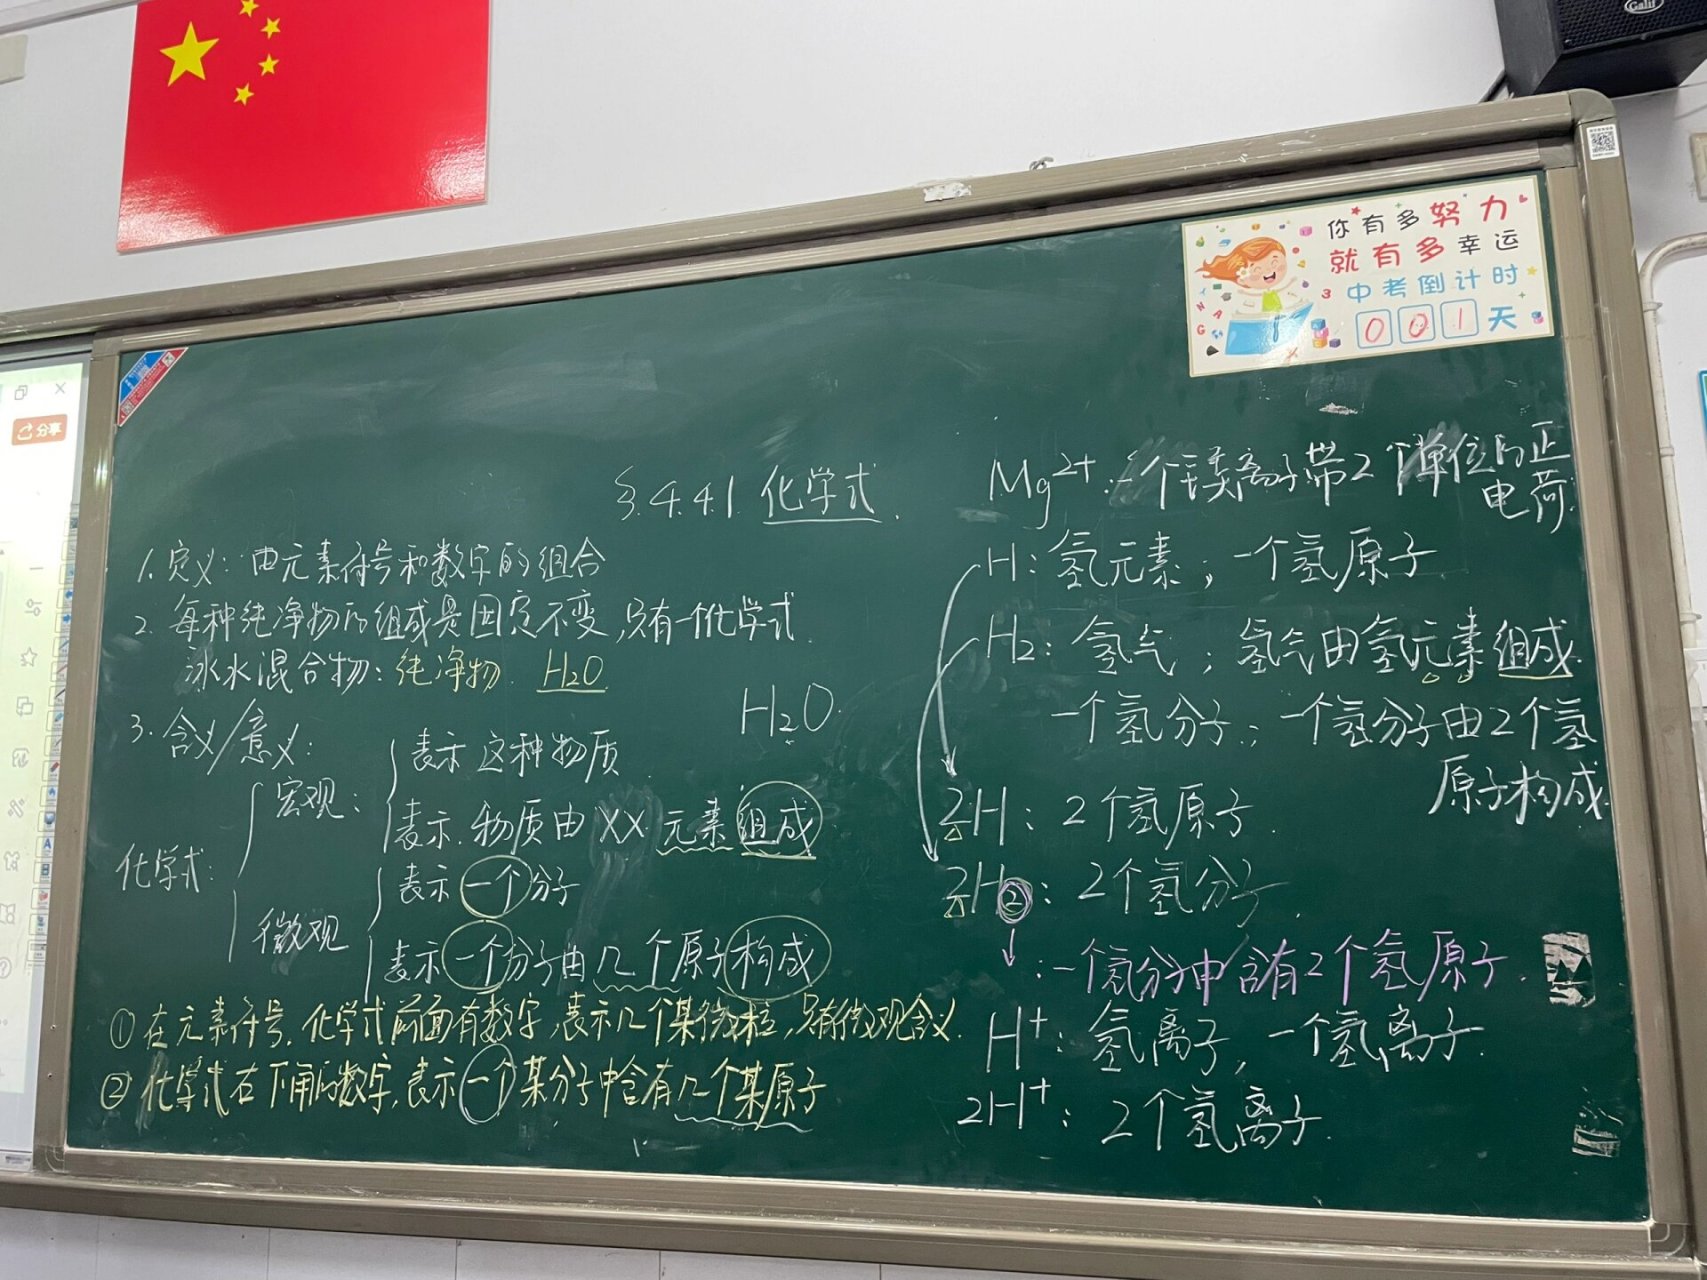 Galil
你有多努力
就有多幸运
中考倒计时
001天
分享
§4.4.1 化学式.
1. 定义：由元素符号和数字的组合
2. 每种纯净物的组成是固定不变,只有一个化学式.
冰水混合物：纯净物. H₂O.
3. 含义/意义：
H₂O.
化学式：
宏观：
表示这种物质
表示.物质由XX.元素组成.
微观
表示一个分子
表示一个分子由几个原子构成
①在元素符号.化学式前面有数字,表示几个某微粒,只有微观含义.
②化学式右下角的数字,表示一个某分子中含有几个某原子
Mg²⁺：一个镁离子带2个单位的正
电荷.
H：氢元素；一个氢原子
H₂：氢气；氢气由氢元素组成.
一个氢分子；一个氢分子由2个氢
原子构成.
2H：2个氢原子.
2H₂：2个氢分子.
：一个氢分子中含有2个氢原子.
H⁺：氢离子,一个氢离子.
2H⁺：2个氢离子.